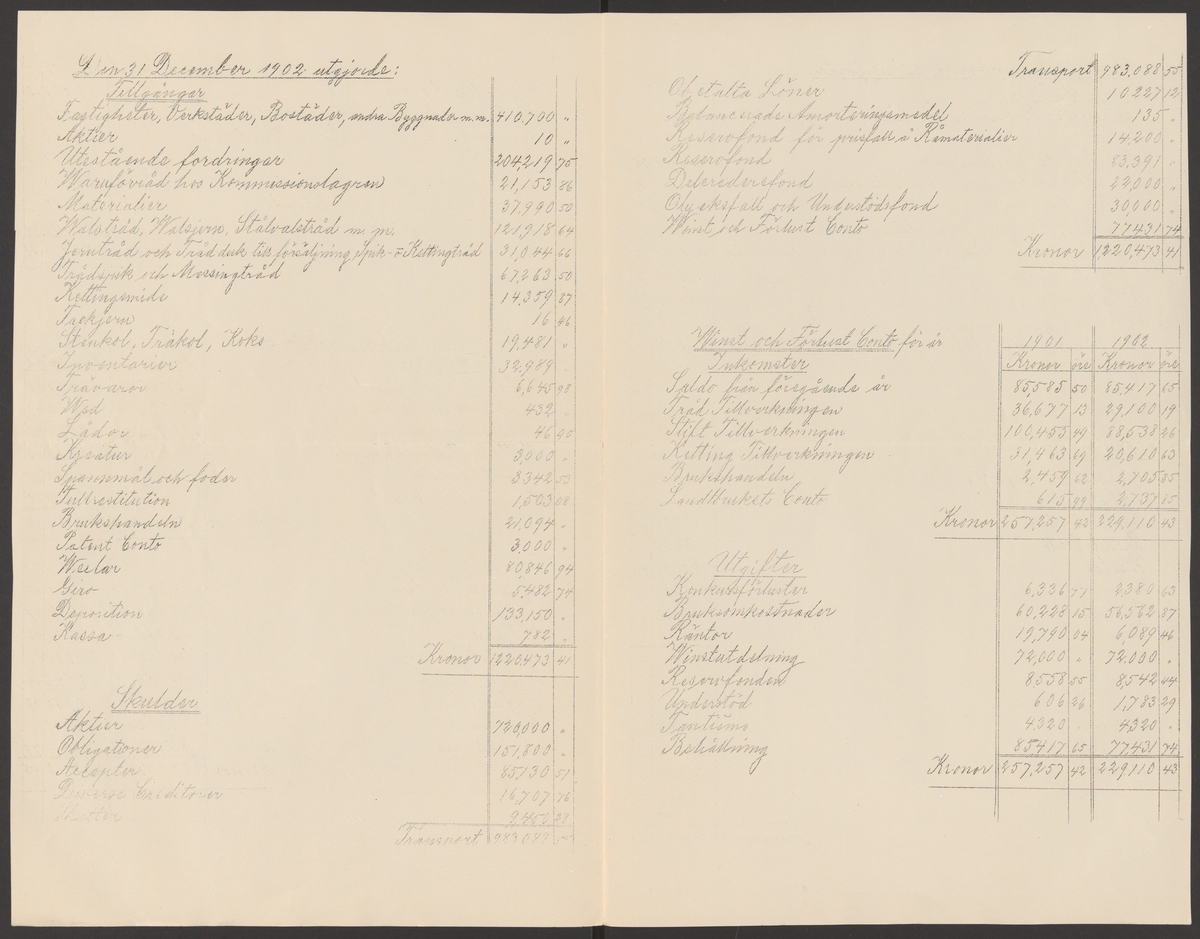 Den 31 December 1902 utgjorde:
Tillgångar
Fastigheter, Verkstäder, Bostäder, andra Byggnader m.m. 410,700 "
Aktier 10 "
Utestående fordringar 204,219 75
Waruförråd hos Kommissionslagren 21,153 86
Materialier 37,990 50
Walstråd, Walsjern, Stålvalstråd m. m. 121,918 64
Jerntråd och Tråd duk till försäljning, Spik- o Kettingtråd 31,044 66
Trådspik och Messingtråd 67,263 50
Kettingsmide 14,359 87
Tackjern 16 46
Stenkol, Träkol, Koks 19,481 "
Inventarier 32,989 "
Trävaror 6,645 98
Wed 432 "
Lådor 46 90
Kreatur 3,000 "
Spannmål och foder 3342 53
Tullrestitution 1,503 08
Brukshandeln 21,094 "
Patent Conto 3,000 "
Wexlar 80,846 94
Giro 5,482 74
Deposition 133,150 "
Kassa 782 "
Kronor 1220,473 41
Skulder
Aktier 720,000 "
Obligationer 151,800 "
Accepter 85130 51
Diverse Creditorer 16,707 76
Skatter 9,450 28
Transport 983,088 55
Transport 983,088 55
Obetalta Löner 10227 12
Balancerade Amorteringsmedel 135 "
Reservfond för prisfall å Råmaterialier 14,200 "
Reservfond 83,391 "
Delcrederefond 22,000 "
Olycksfall och Understödsfond 30,000 "
Winst och Förlust Conto 77431 74
Kronor 1220,473 41
Winst och Förlust Conto för år 1901 1902
Inkomster Kronor öre Kronor öre
Saldo från föregående år 85,585 50 85,417 65
Tråd Tillverkningen 36,677 13 29,100 19
Stift Tillverkningen 100,455 49 88,538 26
Ketting Tillverkningen 31,463 69 20,610 63
Brukshandeln 2,459 62 2,705 85
Landtbrukets Conto 615 99 2,737 85
Kronor 257,257 42 229,110 43
Utgifter
Konkursförluster 6,336 77 2380 63
Bruksomkostnader 60,228 15 56,562 87
Räntor 19,790 04 6,089 46
Winstutdelning 72,000 " 72.000 "
Reservfonden 8,558 55 8,542 44
Understöd 606 26 1,783 29
Tantiéme 4320 " 4320 "
Behållning 85,417 65 77,431 74
Kronor 257,257 42 229,110 43